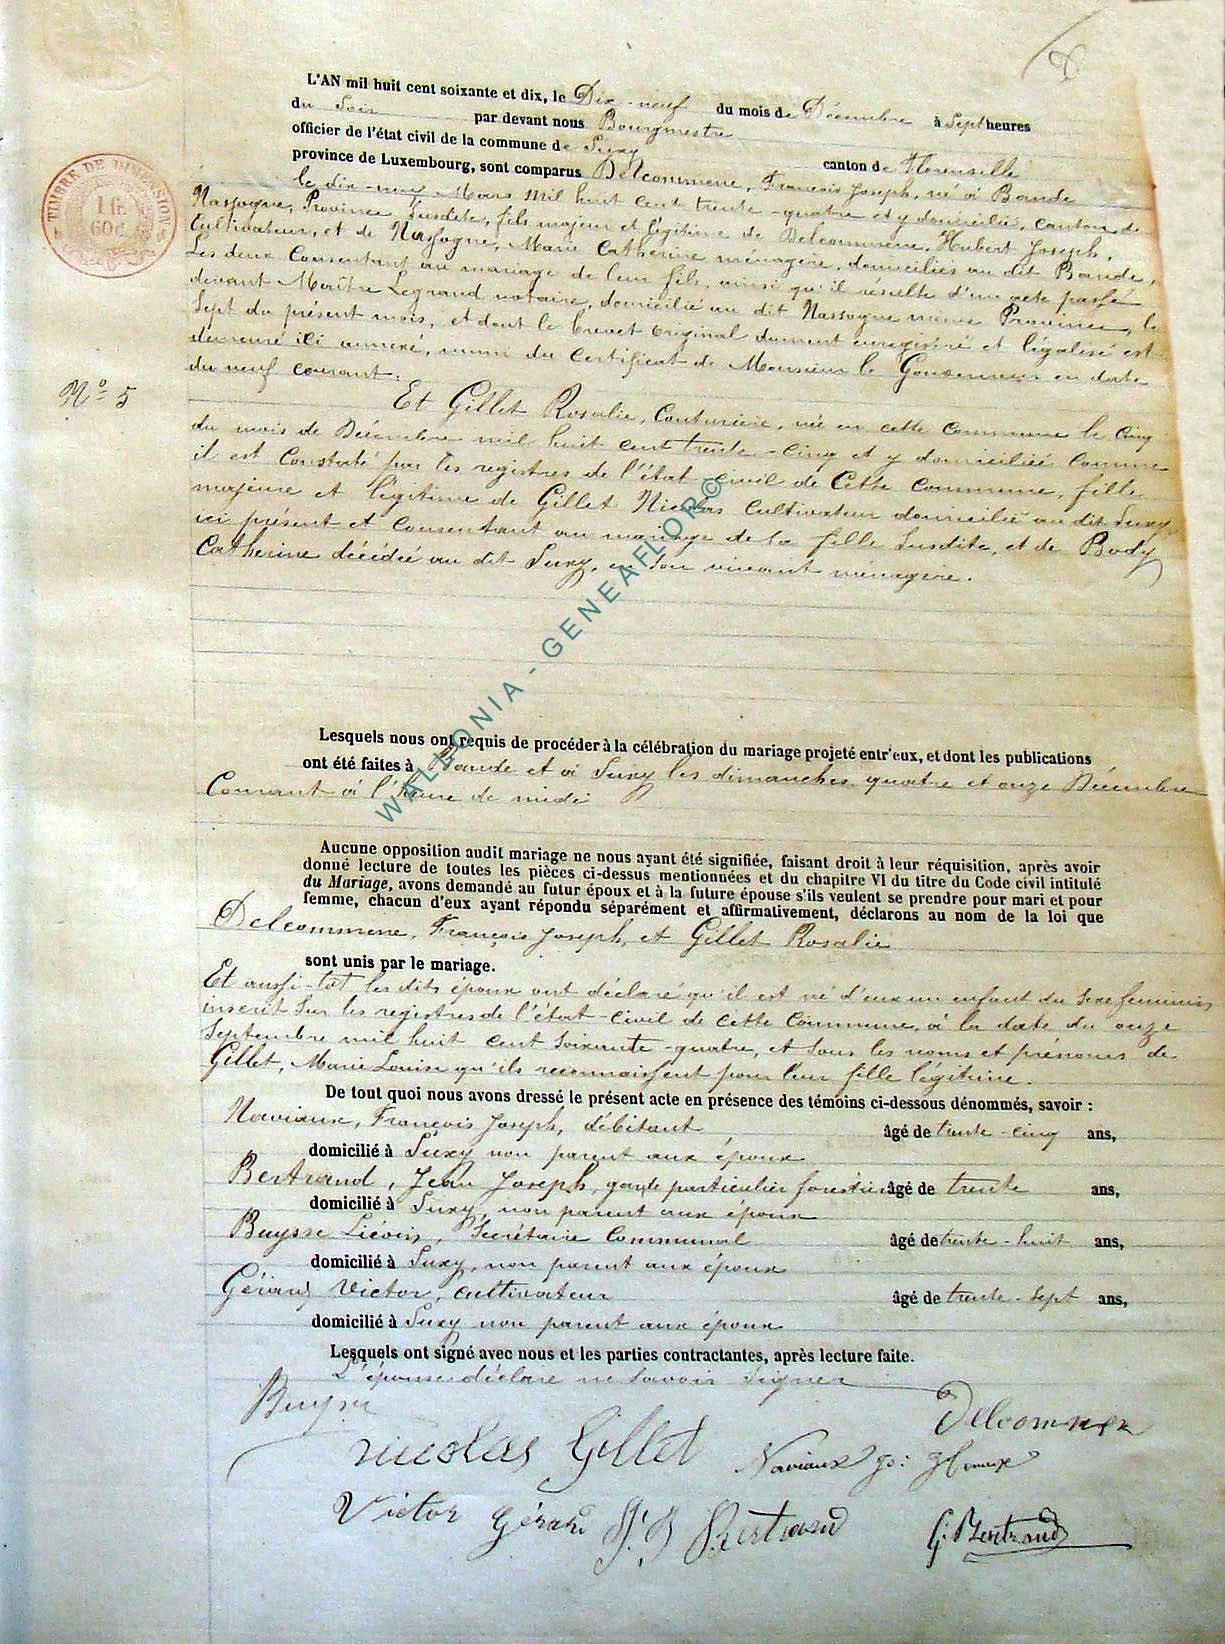 L'AN mil huit cent soixante et dix, le Dix-neuf du mois de Décembre à Sept heures
du Soir par devant nous Bourgmestre
officier de l'état civil de la commune de Suxy canton de Florenville
province de Luxembourg, sont comparus Delcommene, François Joseph, né à Bande
le dix-neuf Mars mil huit cent trente-quatre et y domicilié, canton de
Nassogne, Province Susdite, fils majeur et légitime de Delcommene, Hubert Joseph,
Cultivateur, et de Nassogne, Marie Catherine ménagère, domiciliés au dit Bande,
Les deux Consentant au mariage de leur fils, ainsi qu'il résulte d'un acte passé
devant Maître Legrand notaire, domicilié au dit Nassogne même Province, le
Sept du présent mois, et dont le brevet original dument enregistré et légalisé est
demeuré ici annexé, muni du Certificat de Monsieur le Gouverneur en date
du neuf courant.
TIMBRE DE DIMENSION
1 fr.
60 c.
No 5
Et Gillet Rosalie, Couturière, née en cette Commune le Cinq
du mois de Décembre mil huit cent trente-Cinq et y domiciliée Comme
il est Constaté par les registres de l'état-civil de Cette Commune, fille
majeure et légitime de Gillet Nicolas Cultivateur domicilié au dit Suxy
ici présent et Consentant au mariage de la fille Susdite, et de Body
Catherine décédée au dit Suxy, en Son vivant ménagère.
WALLONIA - GENEAFLOR©
Lesquels nous ont requis de procéder à la célébration du mariage projeté entr'eux, et dont les publications
ont été faites à Bande et à Suxy les dimanches quatre et onze Décembre
Courant à l'heure de midi
Aucune opposition audit mariage ne nous ayant été signifiée, faisant droit à leur réquisition, après avoir
donné lecture de toutes les pièces ci-dessus mentionnées et du chapitre VI du titre du Code civil intitulé
du Mariage, avons demandé au futur époux et à la future épouse s'ils veulent se prendre pour mari et pour
femme, chacun d'eux ayant répondu séparément et affirmativement, déclarons au nom de la loi que
Delcommene, François Joseph, et Gillet Rosalie
sont unis par le mariage.
Et aussi-tot les dits époux ont déclaré qu'il est né d'eux un enfant du Sexe féminin
inscrit Sur les registres de l'état-civil de cette Commune, à la date du onze
Septembre mil huit cent Soixante-quatre, et Sous les noms et prénoms de
Gillet, Marie Louise qu'ils reconnaissent pour leur fille légitime.
De tout quoi nous avons dressé le présent acte en présence des témoins ci-dessous dénommés, savoir :
Noviaux, François Joseph, débitant âgé de trente-cinq ans,
domicilié à Suxy non parent aux époux
Bertrand, Jean Joseph, garde particulier forestier âgé de trente ans,
domicilié à Suxy, non parent aux époux
Buysse Liévin, Sécrétaire Communal âgé de trente-huit ans,
domicilié à Suxy, non parent aux époux
Gérard Victor, cultivateur âgé de trente-sept ans,
domicilié à Suxy non parent aux époux
Lesquels ont signé avec nous et les parties contractantes, après lecture faite.
L'épouse déclare ne Savoir Signer
Buysse Delcommen
nicolas Gillet Noviaux
Victor Gérard J. J Bertrand G. Bertrand